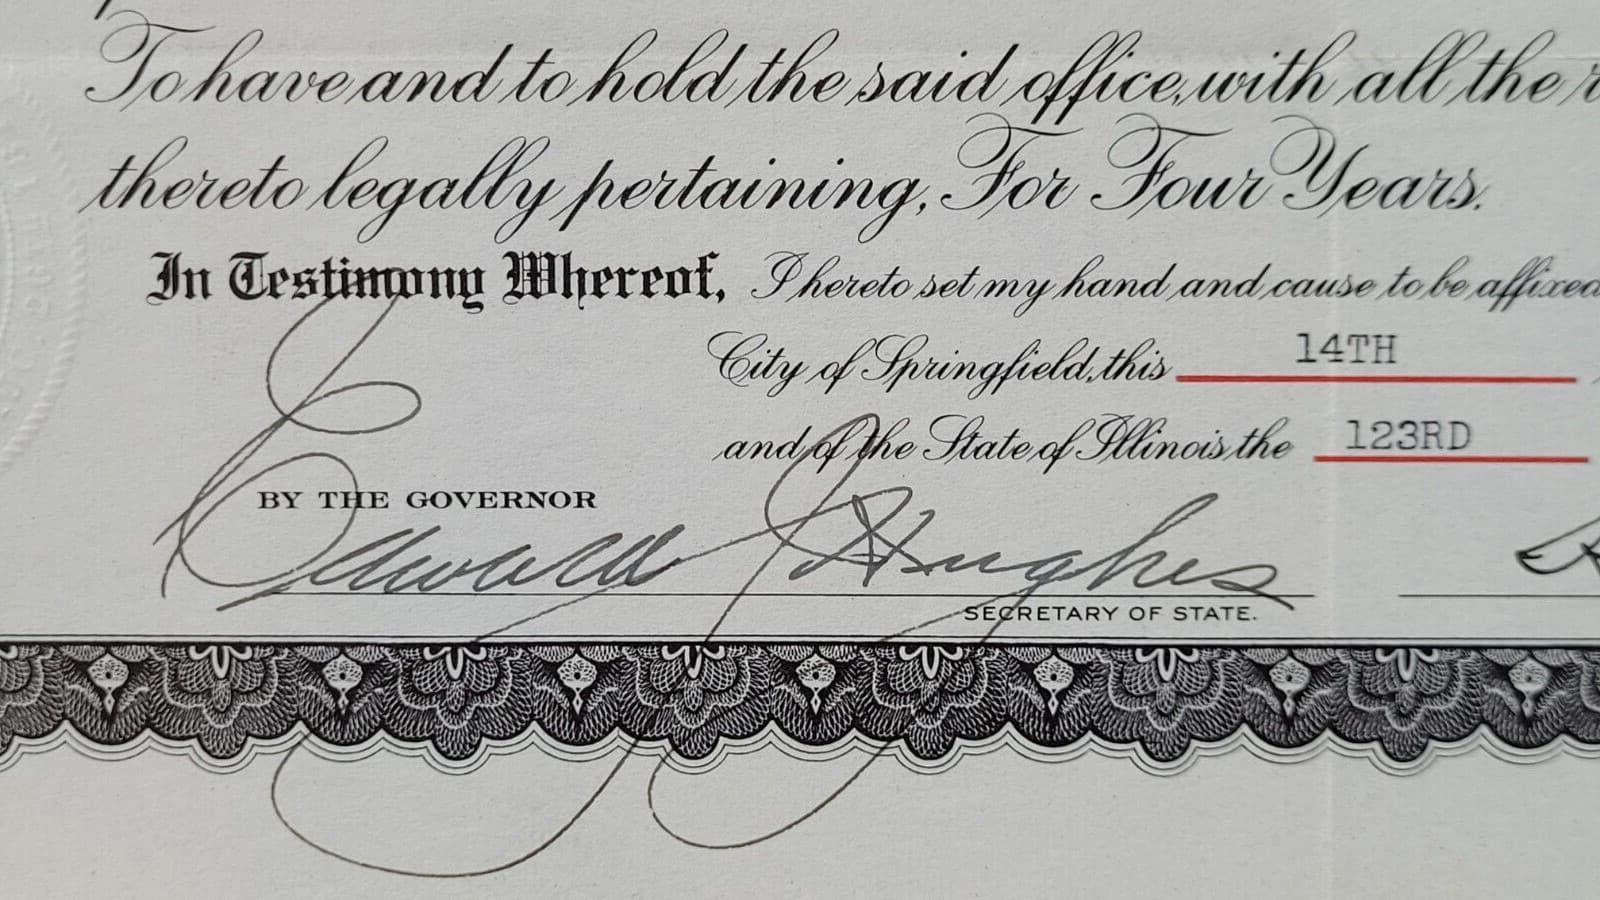 To have and to hold the said office, with all the
thereto legally pertaining, For Four Years.
In Testimony Whereof, I hereto set my hand and cause to be affixed
City of Springfield, this 14TH
and of the State of Illinois the 123RD
BY THE GOVERNOR
Edward J Hughes
SECRETARY OF STATE.